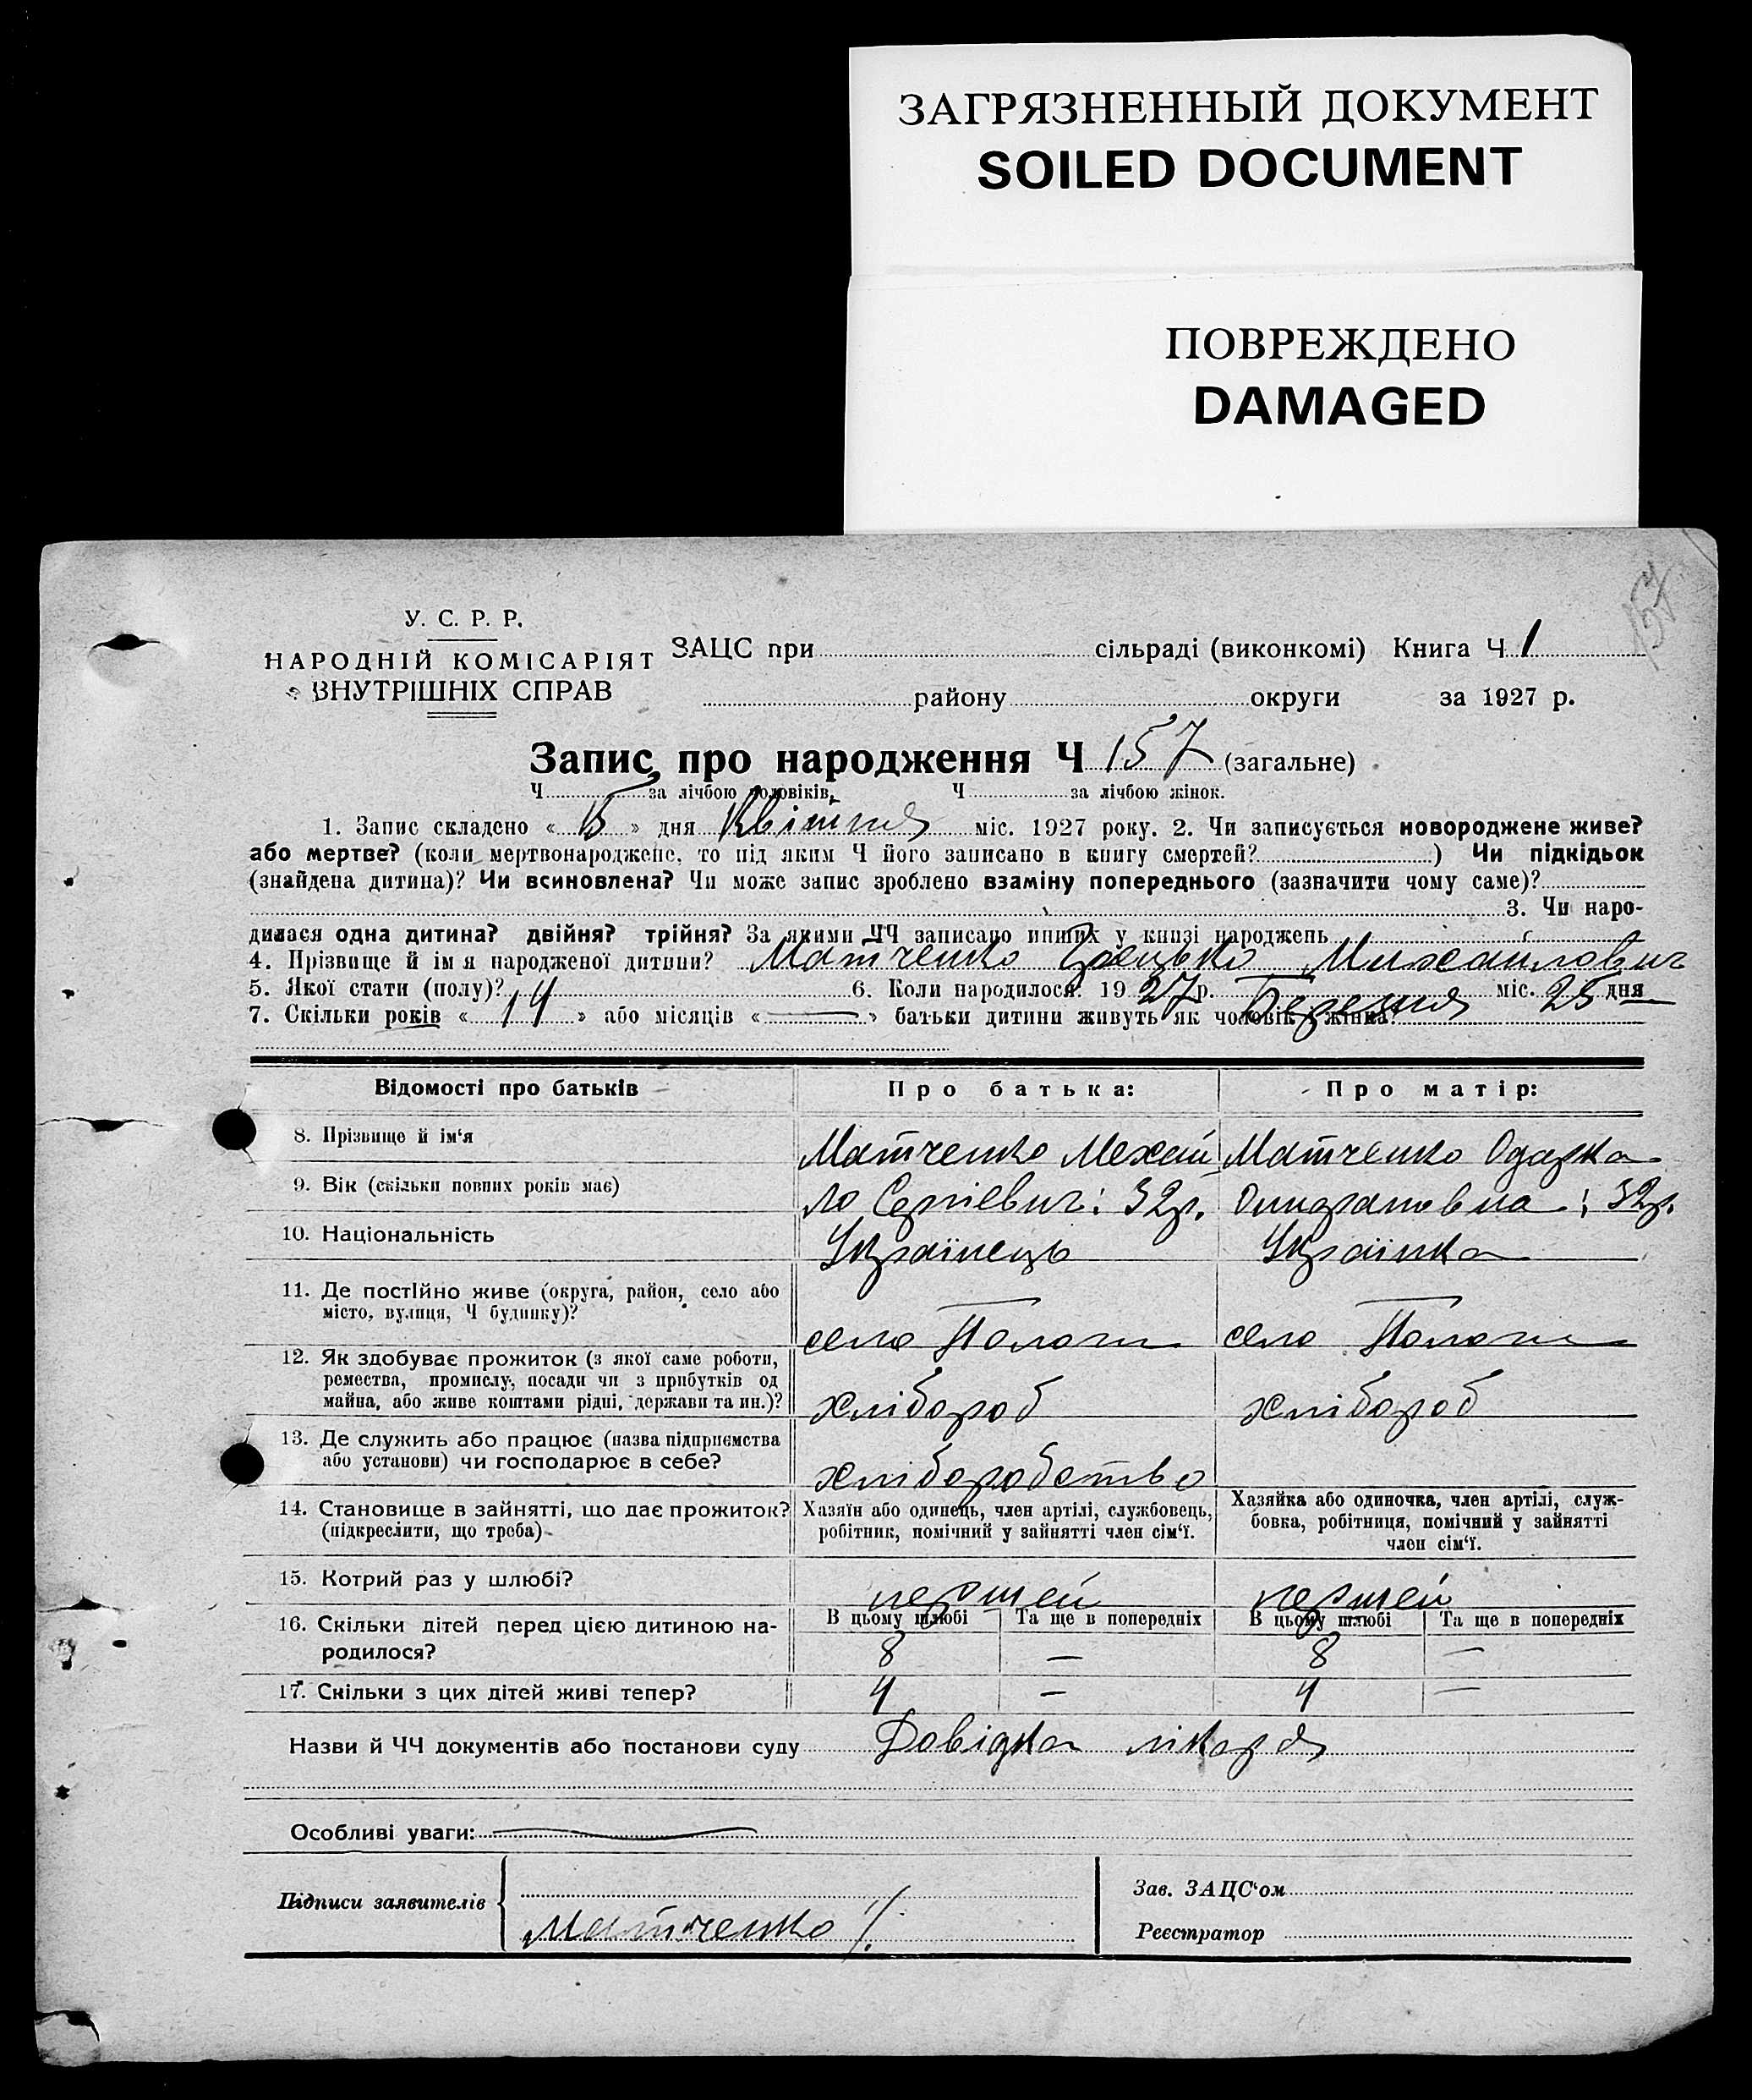 ЗАГРЯЗНЕННЫЙ ДОКУМЕНТ
SOILED DOCUMENT
ПОВРЕЖДЕНО
DAMAGED
157
У. С. Р. Р.
НАРОДНІЙ КОМІСАРІЯТ
ВНУТРІШНІХ СПРАВ
ЗАЦС при сільраді (виконкомі) Книга Ч 1
району округи за 1927 р.
Запис про народження Ч 157 (загальне)
Ч за лічбою чоловіків, Ч за лічбою жінок.
1. Запис складено « 15 » дня Квітня міс. 1927 року. 2. Чи записується новороджене живе?
або мертве? (коли мертвонароджене, то під яким Ч його записано в книгу смертей? ) Чи підкідьок
(знайдена дитина)? Чи всиновлена? Чи може запис зроблено взаміну попереднього (зазначити чому саме)?
3. Чи наро-
дилася одна дитина? двійня? трійня? За якими ЧЧ записано инших у книзі народжень
4. Прізвище й ім'я народженої дитини? Матченко Грецько Михайлович
5. Якої стати (полу)? 6. Коли народилося? 1927 р. Березня міс. 25 дня
7. Скільки років « 14 » або місяців « — » батьки дитини живуть як чоловік і жінка?
Відомості про батьків Про батька: Про матір:
8. Прізвище й ім'я Матченко Мехай Матченко Одарка
9. Вік (скільки повних років має) ло Сергієвич: 32р. : 32р.
10. Національність Українець Українка
11. Де постійно живе (округа, район, село або
місто, вулиця, Ч будинку)? село Пологи село Пологи
12. Як здобуває прожиток (з якої саме роботи,
ремества, промислу, посади чи з прибутків од
майна, або живе коштами рідні, держави та ин.)? хлібороб хлібороб
13. Де служить або працює (назва підприємства
або установи) чи господарює в себе? хліборобство
14. Становище в зайнятті, що дає прожиток? Хазяїн або одинець, член артілі, службовець, Хазяйка або одиночка, член артілі, служ-
(підкреслити, що треба) робітник, помічний у зайнятті член сім'ї. бовка, робітниця, помічний у зайнятті
член сім'ї.
15. Котрий раз у шлюбі? першей першей
16. Скільки дітей перед цією дитиною на- В цьому шлюбі Та ще в попередніх В цьому шлюбі Та ще в попередніх
родилося? 8 — 8 —
17. Скільки з цих дітей живі тепер? 4 — 4 —
Назви й ЧЧ документів або постанови суду Довідка лікаря
Особливі уваги:
Підписи заявителів Зав. ЗАЦС'ом
Матченко Реєстратор